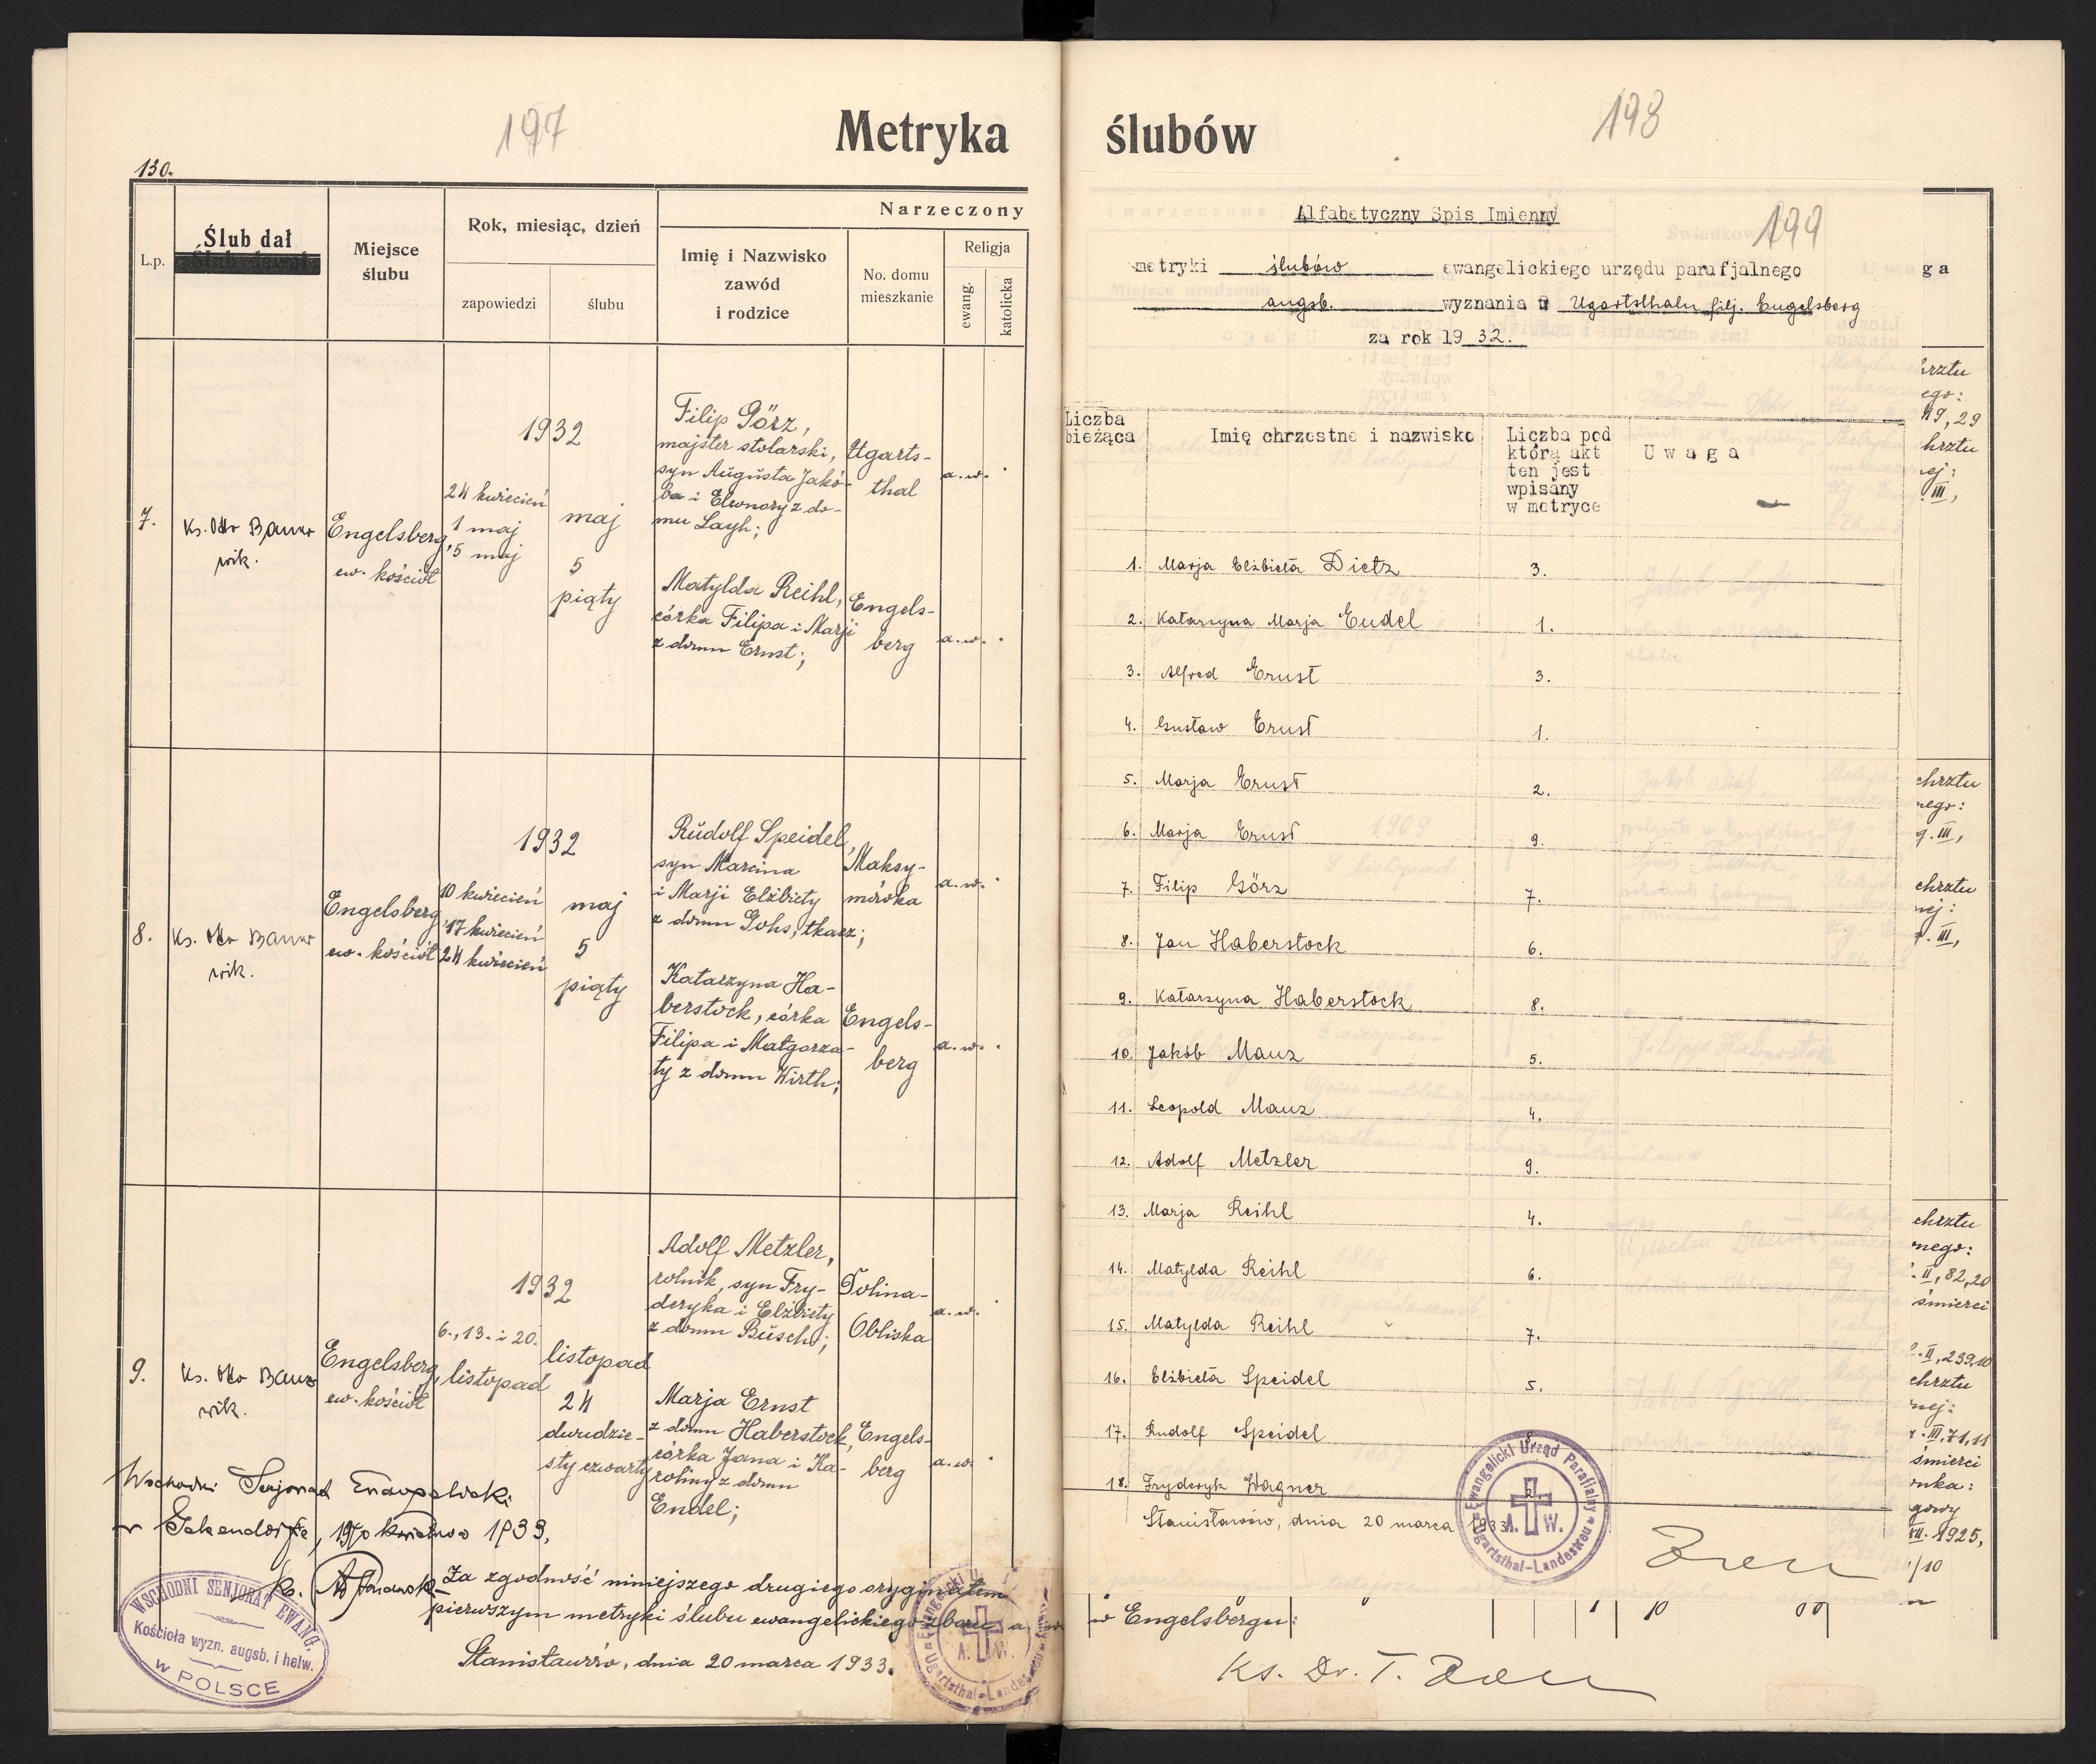 197
Metryka
130.
L.p.
Ślub dał
Miejsce
ślubu
Rok, miesiąc, dzień
zapowiedzi
ślubu
Narzeczony
Imię i Nazwisko
zawód
i rodzice
No. domu
mieszkanie
Religja
ewang.
katolicka
7.
Ks. Otto Bauer
wik.
Engelsberg,
ew. kościół
1932
24 kwiecień
1 maj
5 maj
maj
5
piąty
Filip Görz,
majster stolarski,
syn Augusta Jakó-
ba i Eleonory z do-
mu Layh;
Ugarts-
thal
a.w.
Matylda Reihl,
córka Filipa i Marji
z domu Ernst;
Engels-
berg
a.w.
8.
Ks. Otto Bauer
wik.
Engelsberg
ew. kościół
1932
10 kwiecień
17 kwiecień
24 kwiecień
maj
5
piąty
Rudolf Speidel,
syn Marcina
i Marji Elżbiety
z domu Gohs, tkacz;
Maksy-
mówka
a.w.
Katarzyna Ha-
berstock, córka
Filipa i Małgorza-
ty z domu Wirth;
Engels-
berg
a.w.
9.
Ks. Otto Bauer
wik.
Engelsberg,
ew. kościół
1932
6., 13. i 20.
listopad
listopad
24
dwudzie-
sty czwarty
Adolf Metzler,
rolnik, syn Fry-
deryka i Elżbiety
z domu Busch;
Dolina-
Obliska
a.w.
Marja Ernst
z domu Haberstock,
córka Jana i Ka-
roliny z domu
Endel;
Engels-
berg
a.w.
Wschodni Senjorat Ewangelicki
1933.
Za zgodność niniejszego drugiego oryginału
pierwszym metryki ślubu ewangelickiego zboru a. w.
Stanisławów, dnia 20 marca 1933.
WSCHODNI SENJORAT EWANG.
Kościoła wyzn. augsb. i helw.
w POLSCE
A. W.
198
ślubów
199
Alfabetyczny Spis Imienny
metryki ślubów ewangelickiego urzędu parafjalnego
augsb. wyznania w Ugartsthalu filj. Engelsberg
za rok 1932.
Liczba
bieżąca
Imię chrzestne i nazwisko
Liczba pod
którą akt
ten jest
wpisany
w metryce
Uwaga
1. Marja Elżbieta Dietz 3.
2. Katarzyna Marja Endel 1.
3. Alfred Ernst 3.
4. Gustaw Ernst 1.
5. Marja Ernst 2.
6. Marja Ernst 9.
7. Filip Görz 7.
8. Jan Haberstock 6.
9. Katarzyna Haberstock 8.
10. Jakób Mauz 5.
11. Leopold Mauz 4.
12. Adolf Metzler 9.
13. Marja Reihl 4.
14. Matylda Reihl 6.
15. Matylda Reihl 7.
16. Elżbieta Speidel 5.
17. Rudolf Speidel 8.
18. Fryderyk Wagner 2.
Stanisławów, dnia 20 marca 1933
Ewangelicki Urząd Parafjalny
A. W.
Ugartsthal-Landestreu
w Engelsbergu:
Ks. Dr. T. Zöckler